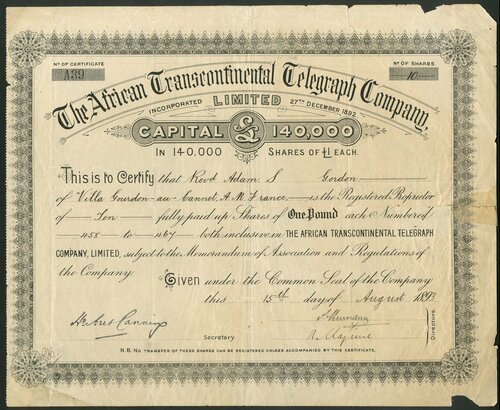 No OF CERTIFICATE
A39
No OF SHARES
10
The African Transcontinental Telegraph Company,
INCORPORATED LIMITED 27TH DECEMBER, 1892.
CAPITAL £ 140,000
IN 140.000 SHARES OF £1 EACH.
This is to Certify that Revd Adam S Gordon
of Villa Gourdon-au-Cannet, A.M. France, is the Registered Proprietor
of Ten fully paid up Shares of One Pound each Numbered
458 to 467 both inclusive in THE AFRICAN TRANSCONTINENTAL TELEGRAPH
COMPANY, LIMITED, subject to the Memorandum of Association and Regulations of
the Company.
Given under the Common Seal of the Company
this 15th day of August 1893
Herbert Canning
Secretary
Directors.
N.B. No TRANSFER OF THESE SHARES CAN BE REGISTERED UNLESS ACCOMPANIED BY THIS CERTIFICATE.